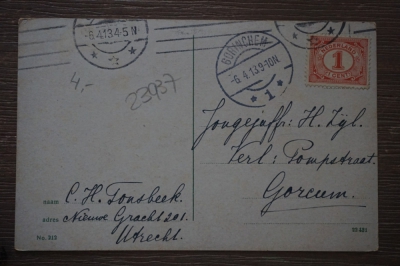 6.4.13 4-5 N
GORINCHEM
6.4.13.9-10N.
1
NEDERLAND
1
1 CENT
4,-
23937
Jongejuffr: H. Zyl.
Verl: Pompstraat.
Gorcum.
naam C. H. Fonsbeek.
adres Nieuwe Gracht 201.
Utrecht.
No. 313